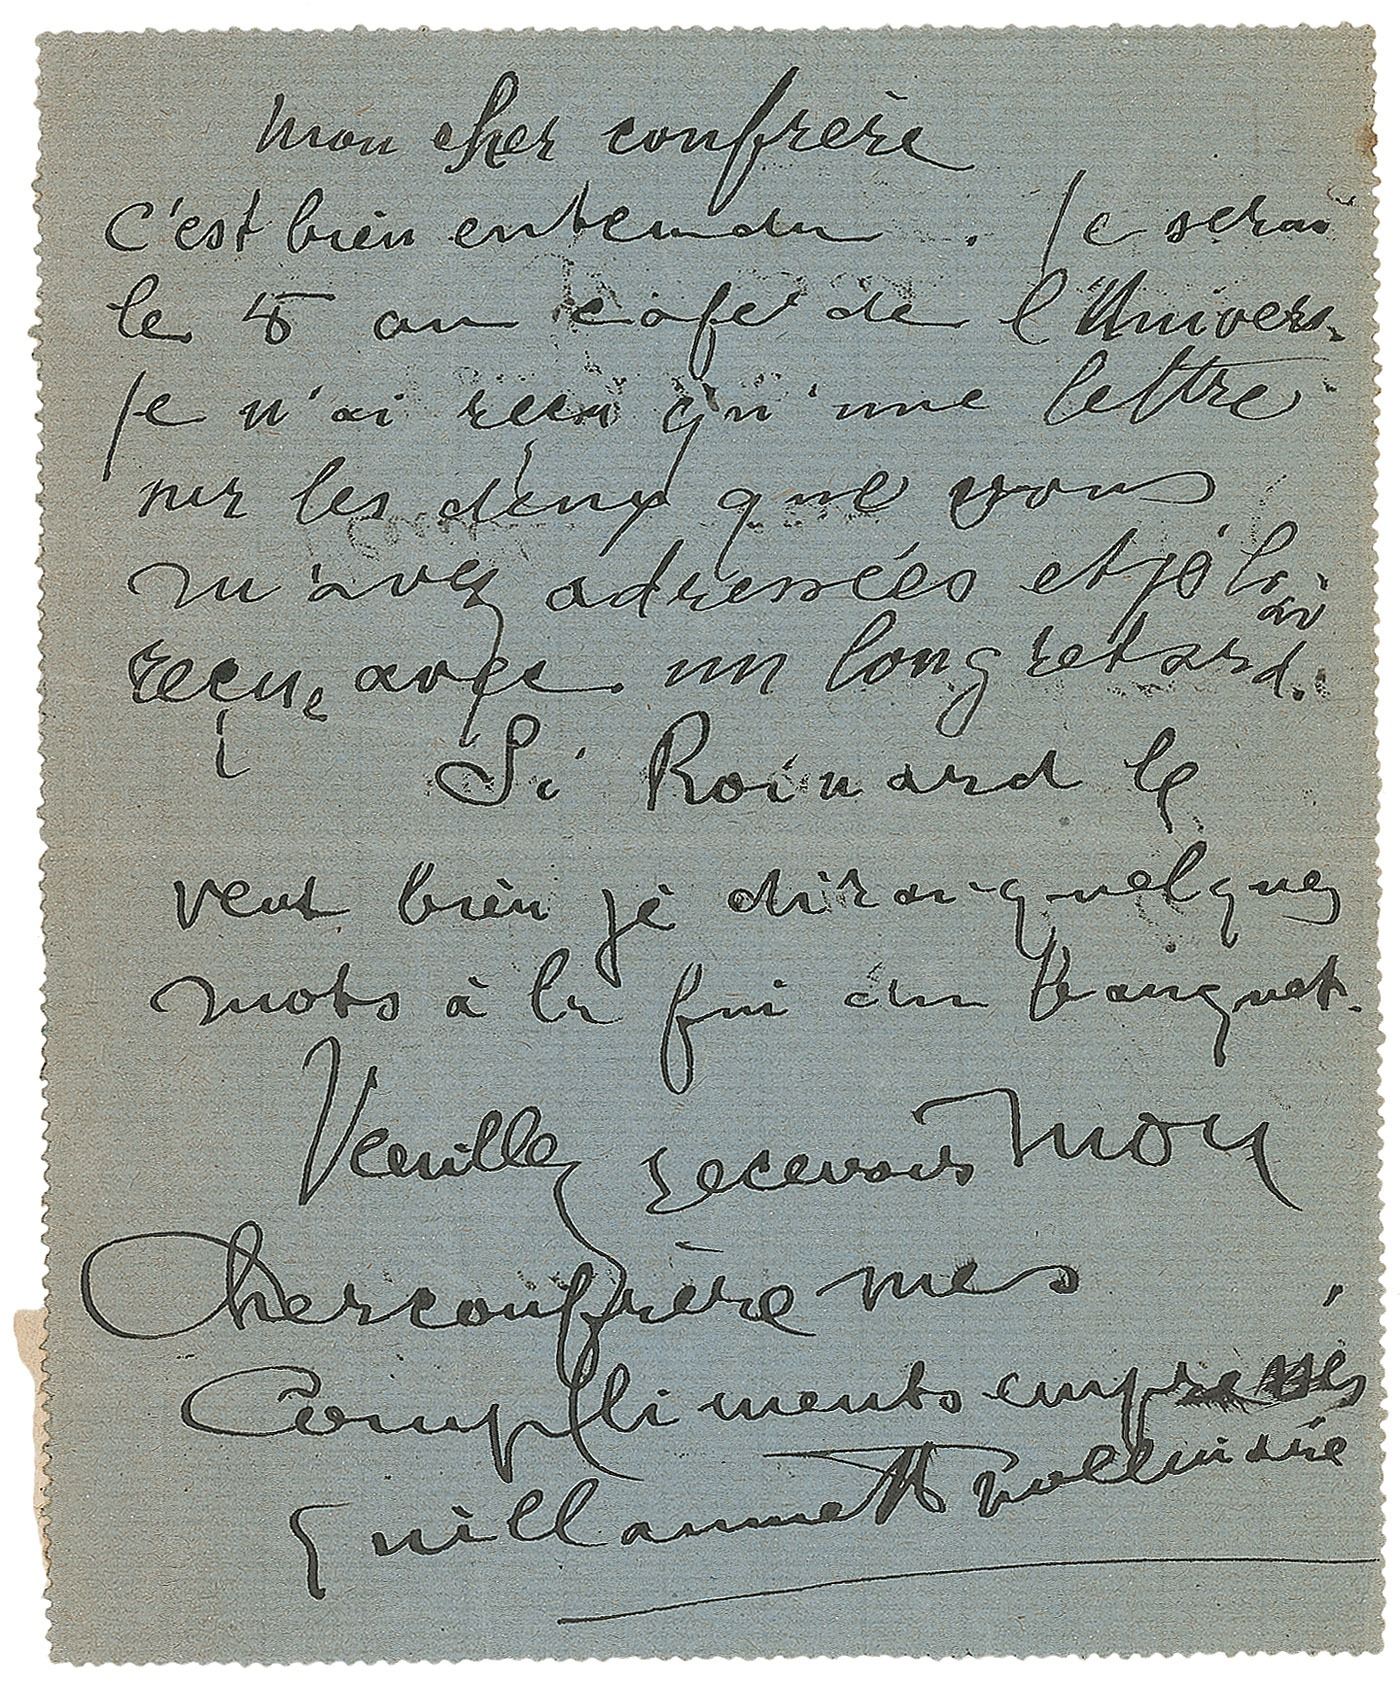 Mon cher confrère
C'est bien entendu. Je serai
le 5 au café de l'Univers.
Je n'ai reçu qu'une lettre
sur les deux que vous
m'avez adressées et je l'ai
reçue avec un long retard.
Si Roinard le
veut bien je dirai quelques
mots à la fin du banquet.
Veuillez recevoir mon
cher confrère mes
Compliments empressés
Guillaume Apollinaire